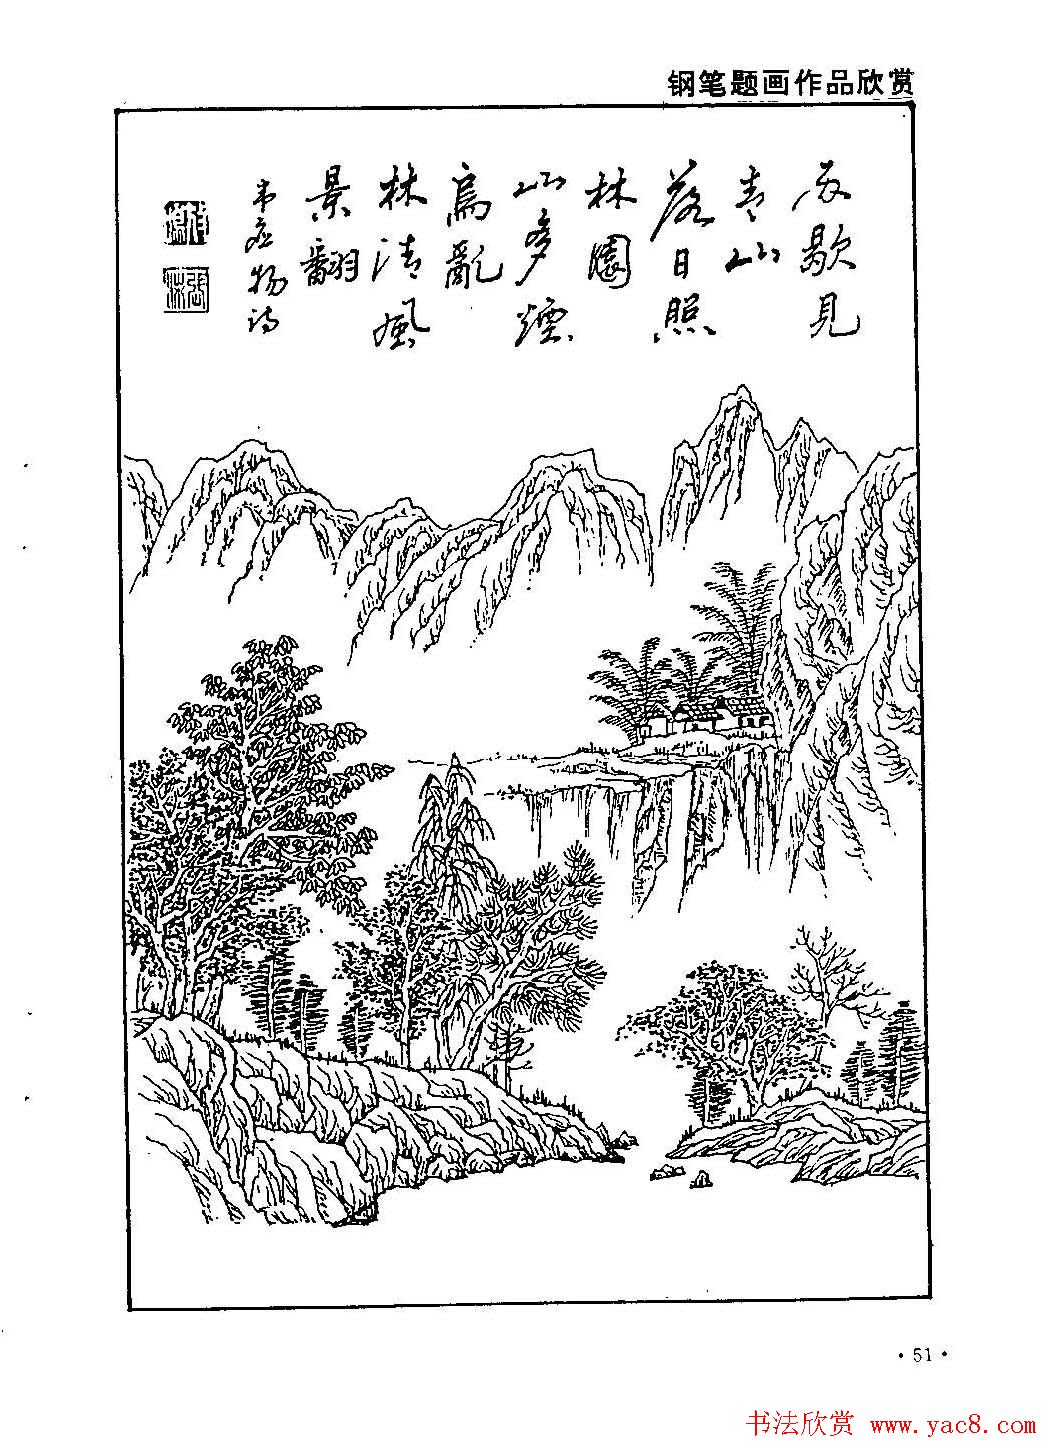 钢笔题画作品欣赏
雨歇見
青山
落日照
林園
山多煙
鳥亂
林清風
景翻
韦应物诗
·51·
书法欣赏 www.yac8.com